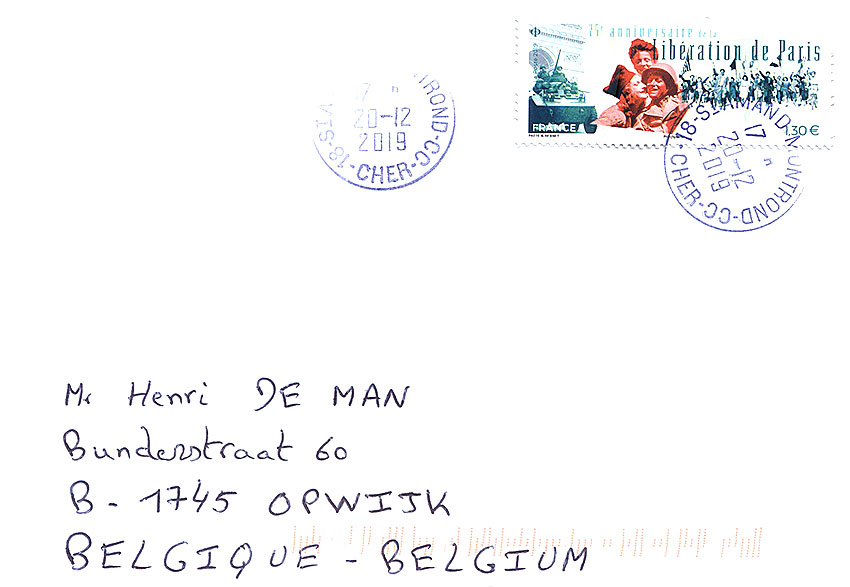 75e anniversaire de la
Libération de Paris
FRANCE
1,30 €
18-ST AMAND-MONTROND-CC-CHER
17 H
20-12
2019
7 H
20-12
2019
ROND-CC-CHER-18-ST A
Mr Henri DE MAN
Bunderstraat 60
B - 1745 OPWIJK
BELGIQUE - BELGIUM